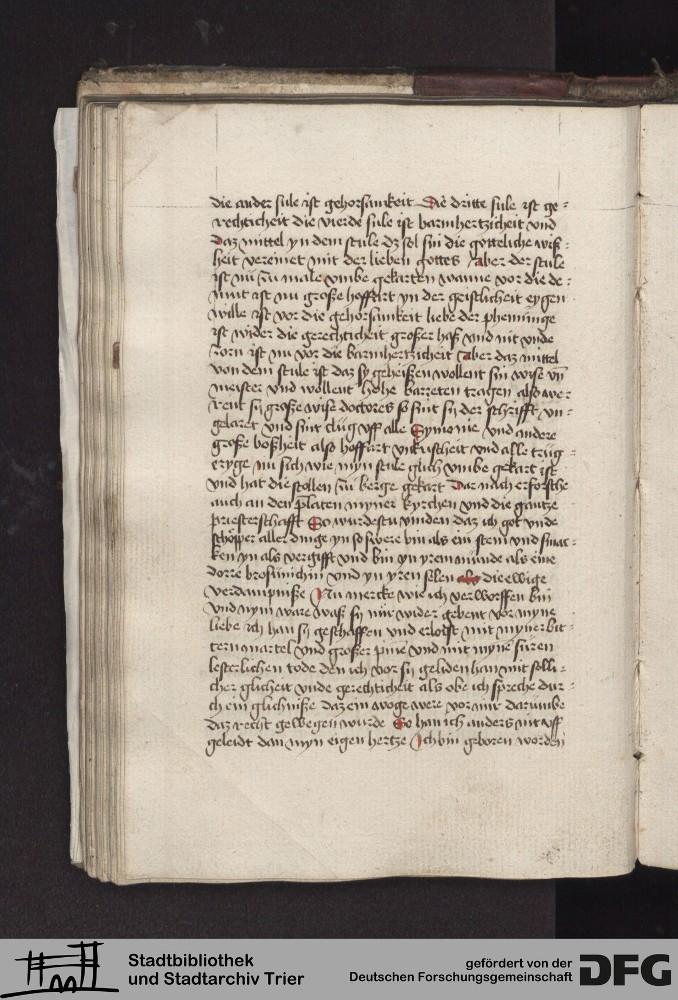 die ander sule ist gehorsamkeit Die dritte sule ist ge-
rechticheit die vierde sule ist barmhertzicheit vnd
Daz mittel yn dem stule dz sol sin die gotteliche wiß-
heit vereinet mit der lieben gottes Aber der stule
ist nů zů male vmbe gekarten wanne vor die de-
mut ist nu große hoffart yn der geistlicheit eygen
wille ist vor die gehorsamkeit liebe der pfenninge
ist wider die gerechticheit großer haß vnd nit vnde
zorn ist nu vor die barmhertzicheit Aber daz mittel
von dem stule ist daz sy geheißen wollent sin wise vn
meister vnd wollent hohe barreten tragen also we-
rent sy große wise doctores so sint sy der schrifft vn-
gelaret vnd sint clůg vff alle Symonie vnd andere
große boßheit also hoffart vnkuscheit vnd alle trüg-
eryge nu sich wie myn stule glich vmbe gekart ist
vnd hat die stollen zů berge gekart Dar nach erforsche
auch an den platen myner kyrchen vnd die gantze
priesterschafft So wurdestu vinden daz ich got vnde
schöpper aller dinge yn so swere bin als ein stein vnd smac-
ken yn als vergifft vnd bin yn yrem munde als eine
dorre brosmichin vnd yn yren selen die ewige
verdampniße Nu mercke wie ich verworffen bin
vnd nym ware waß sy mir wider gebent vor myne
liebe ich han sy geschaffen vnd erloßt mit myner bit-
tern martel vnd großer pine vnd mit myne suren
lesterlichen tode den ich vor sy geliden han mit solli-
cher glicheit vnde gerechticheit als obe ich spreche dur-
ch ein glichniße daz ein woge were vor mir darumbe
daz recht gewegen wurde So han ich anders nit vff
geleidt dan myn eigen hertze Ich bin geboren worden
Stadtbibliothek
und Stadtarchiv Trier
gefördert von der
Deutschen Forschungsgemeinschaft
DFG